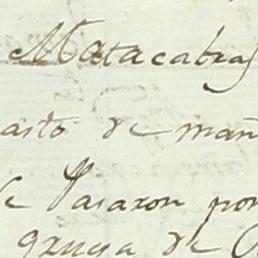 Matacabras
asto de mañ
se Pasaron por
gruesa de